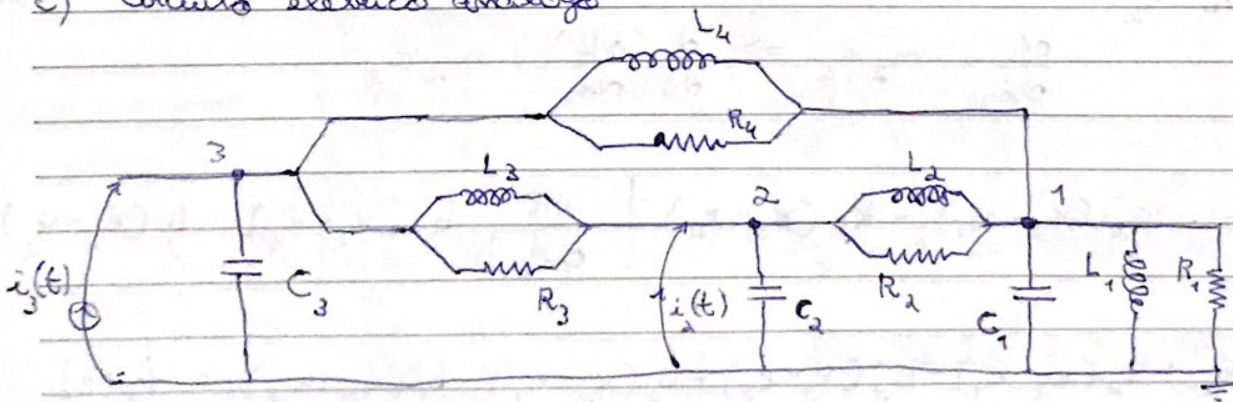 c) Circuito elétrico análogo
L₄
R₄
3
L₃
2
L₂
1
i₃(t)
C₃
R₃
i₂(t)
C₂
R₂
C₁
L₁
R₁